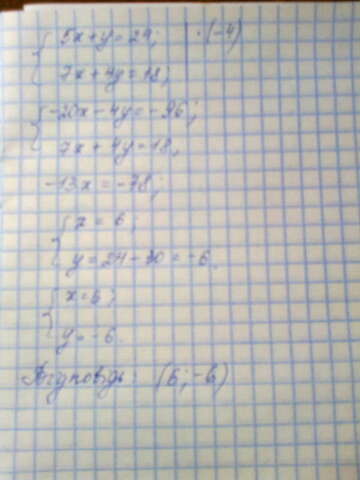 { 5x+y=24; | ·(-4)
7x+4y=18;
{ -20x-4y=-96;
7x+4y=18;
-13x=-78;
{ x=6;
y=24-30=-6.
{ x=6;
y=-6.
Відповідь: (6;-6)